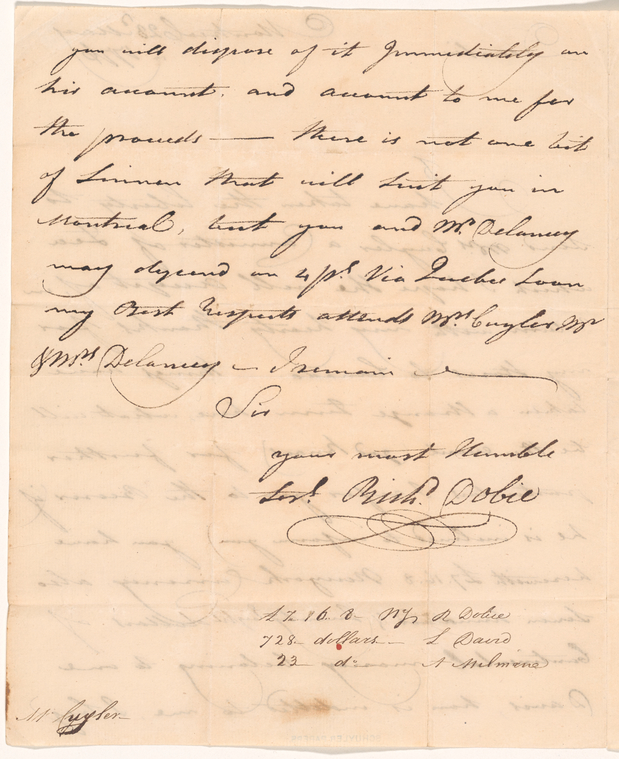 you will dispose of it Immediately on
his account, and account to me for
the proceeds — there is not one bit
of Linnen that will Suit you in
Montreal, but you and Mr. Delancey
may depend on 4 ps. Via Quebec Soon
my Best Respects attends Mrs. Cuyler, Mr
& Mrs Delancey — I remain
Sir
your most Humble
Servt. Richd. Dobie
8 NY R Dobie
728 dollars — L David
23 do
Mr Cuyler